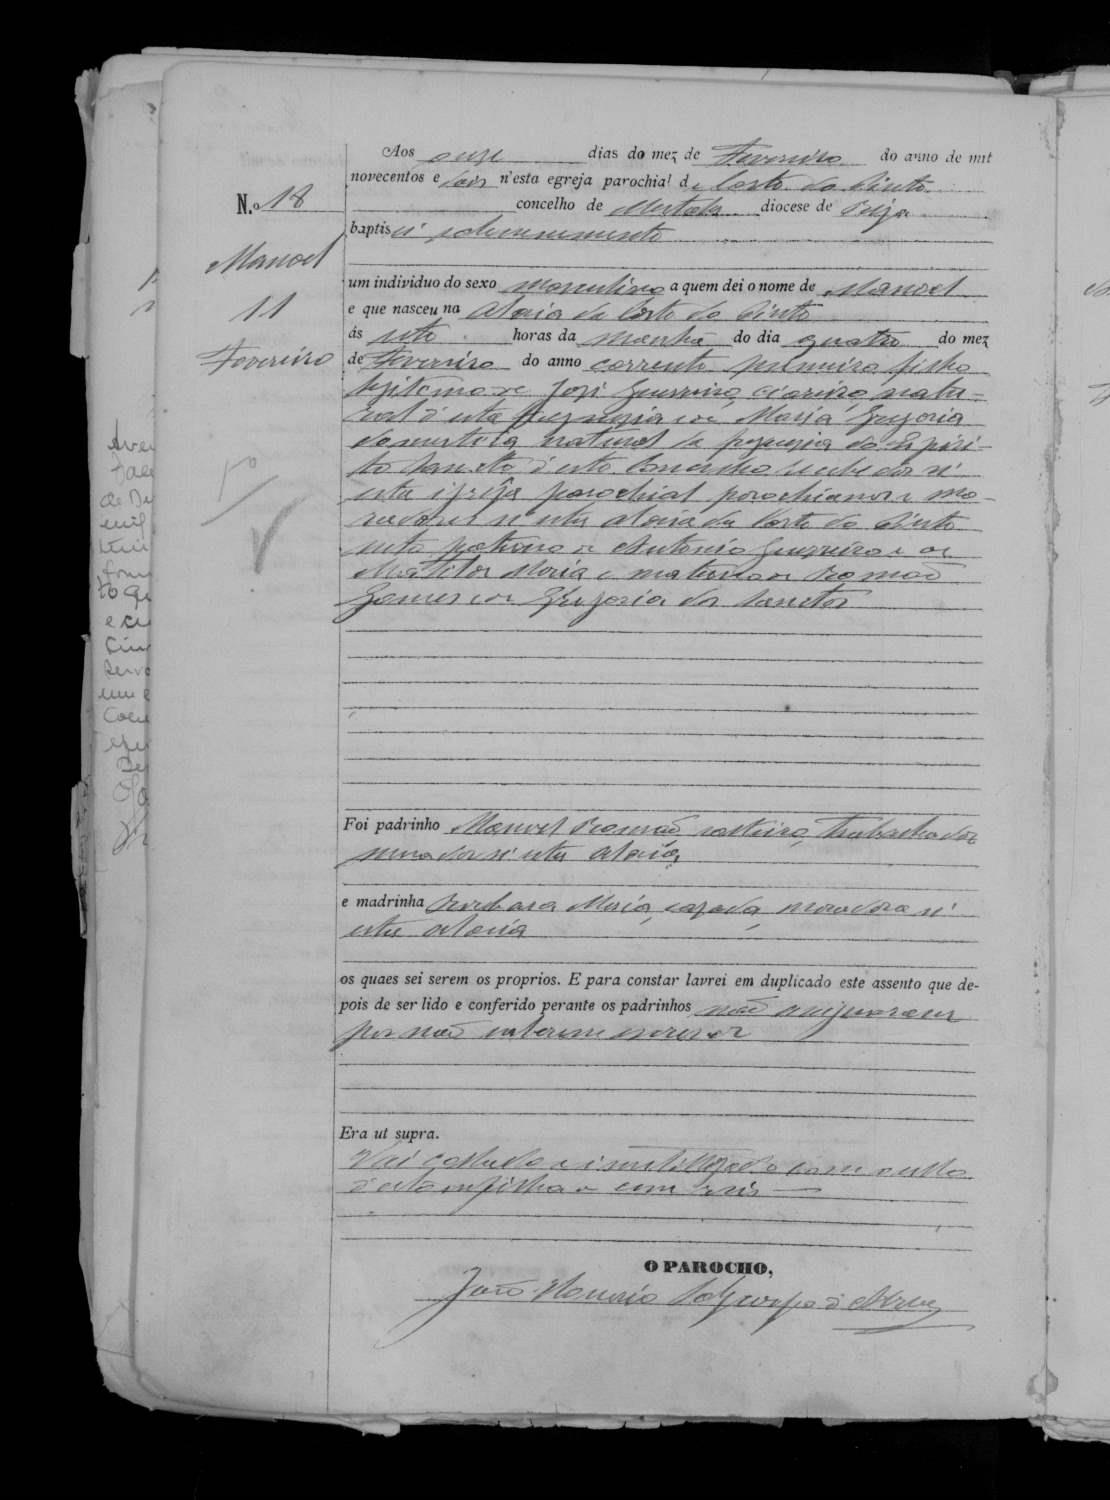 Aos onze dias do mez de Fevereiro do anno de mil
novecentos e dois n'esta egreja parochial de Corte do Pinto
N.o 18
concelho de Mertola diocese de Beja
baptisei solemnemente
Manoel
um individuo do sexo masculino a quem dei o nome de Manoel
11
e que nasceu na aldeia da Corte do Pinto
ás sete horas da manhã do dia quatro do mez
Fevereiro
de Fevereiro do anno corrente primeiro filho
legitimo de José Guerreiro, natu-
ral d'esta freguezia e de Maria Gregoria
domestica natural da freguezia do Espiri-
to Sancto d'este Concelho recebidos n'
esta igreja parochial parochianos e mo-
radores n'esta aldeia da Corte do Pinto
neto paterno de Antonio Guerreiro e de
Maria e materno de Romão
Gomes e de Gregoria dos Sanctos
Foi padrinho Manoel Romão, solteiro, trabalhador
morador n'esta aldeia,
e madrinha Barbara Maria, cazada, moradora n'
esta aldeia
os quaes sei serem os proprios. E para constar lavrei em duplicado este assento que de-
pois de ser lido e conferido perante os padrinhos não assignaram
por não saberem escrever
Era ut supra.
Vai collado e inutilizado com o sello
d'estampilha de cem reis
O PAROCHO,
João